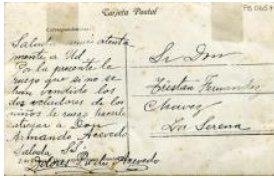 Tarjeta Postal
Correspondencia
Saludo muy atenta
mente a Ud
Por la presente le
ruego que si no se
han vendido los
dos veladores de los
niños le ruego hacerle
entregar a Don
Armando Acevedo
Saluda SS.
Dolores Acevedo
Sr Don
Tristan Fernandez
Chavez
La Serena